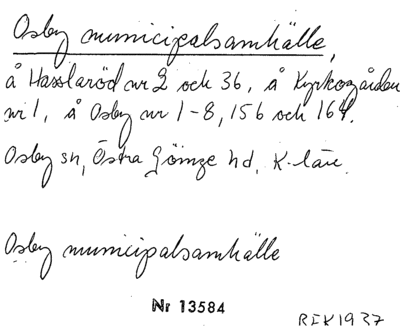 Osby municipalsamhälle,
å Hasslaröd nr 2 och 36, å Kyrkogården
nr 1, å Osby nr 1-8, 156 och 164.
Osby sn, Östra Göinge hd, K-län.
Osby municipalsamhälle
Nr 13584
REK 1937